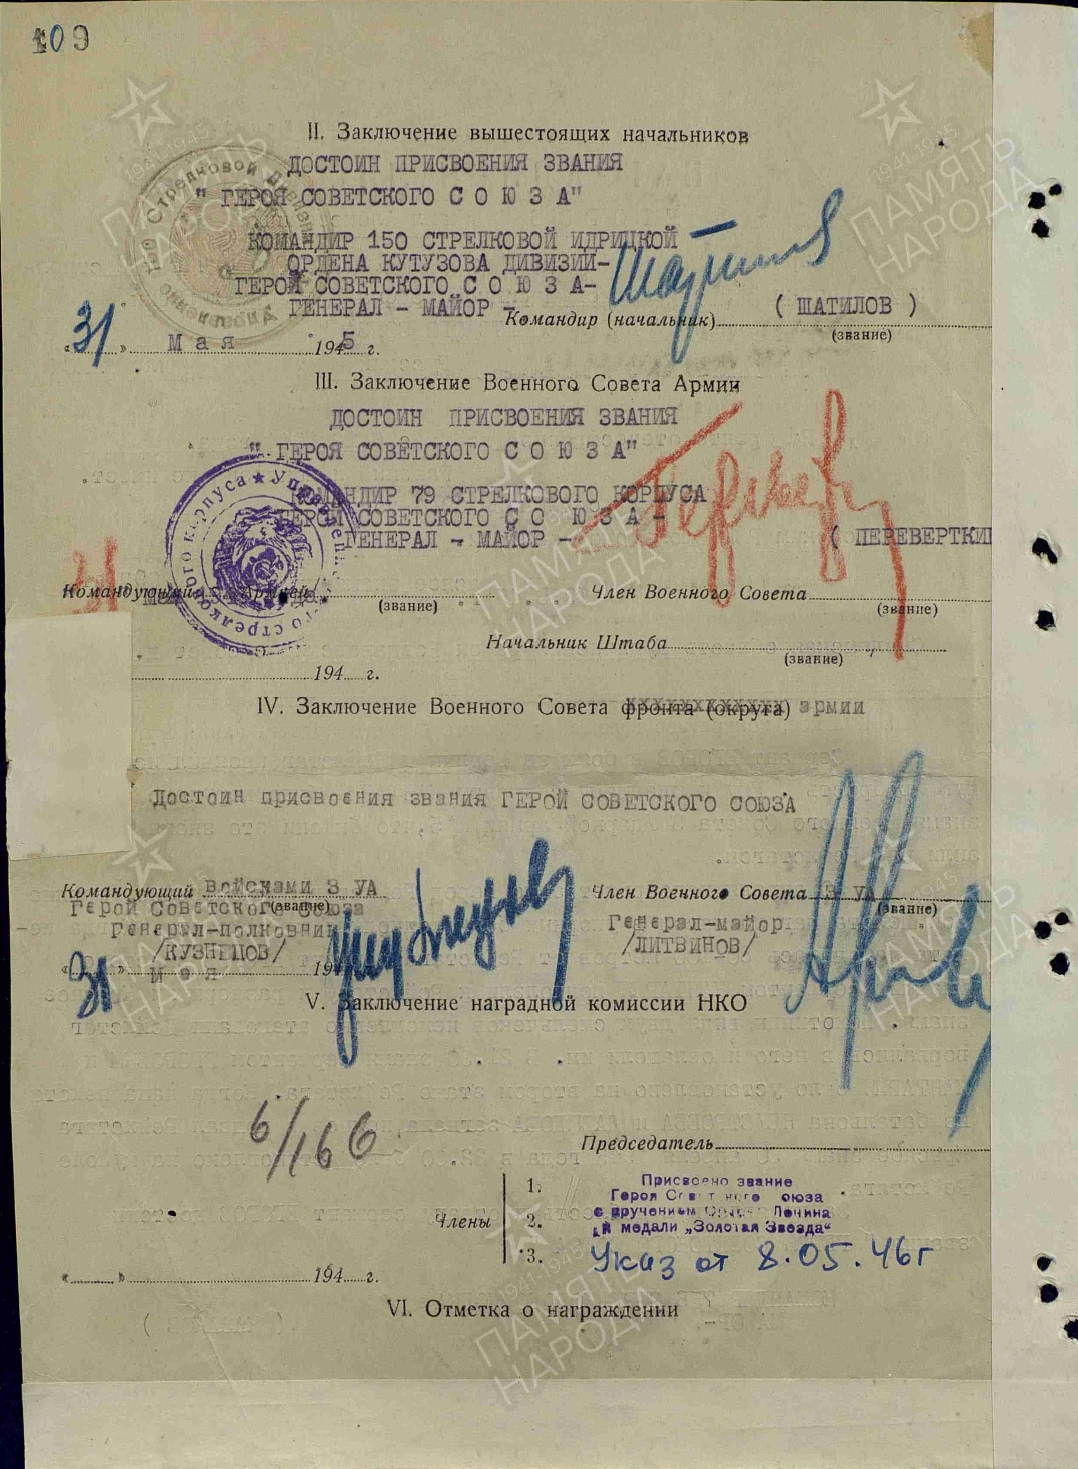 109
II. Заключение вышестоящих начальников
ДОСТОИН ПРИСВОЕНИЯ ЗВАНИЯ
" ГЕРОЯ СОВЕТСКОГО С О Ю З А"
КОМАНДИР 150 СТРЕЛКОВОЙ ИДРИЦКОЙ
ОРДЕНА КУТУЗОВА ДИВИЗИИ-
ГЕРОЙ СОВЕТСКОГО С О Ю З А-
ГЕНЕРАЛ - МАЙОР -
Командир (начальник) ( ШАТИЛОВ )
(звание)
«31» М а я 1945 г.
III. Заключение Военного Совета Армии
ДОСТОИН ПРИСВОЕНИЯ ЗВАНИЯ
" ГЕРОЯ СОВЕТСКОГО С О Ю З А"
КОМАНДИР 79 СТРЕЛКОВОГО КОРПУСА
ГЕРОЙ СОВЕТСКОГО С О Ю З А -
ГЕНЕРАЛ - МАЙОР - ( ПЕРЕВЕРТКИН
Командующий Армией Член Военного Совета
31 Мая
(звание) (звание)
Начальник Штаба
(звание)
194 г.
IV. Заключение Военного Совета фронта (округа) армии
Достоин присвоения звания ГЕРОЙ СОВЕТСКОГО СОЮЗА
Командующий войсками 3 УА Член Военного Совета 3 УА
(звание) (звание)
Герой Советского Союза
Генерал-полковник Генерал-майор
/КУЗНЕЦОВ/ /ЛИТВИНОВ/
«31» М а я 194
V. Заключение наградной комиссии НКО
6/166
Председатель
Члены
1.
2.
3.
Присвоено звание
Героя Советского Союза
с вручением Ордена Ленина
и медали „Золотая Звезда"
Указ от 8.05.46г
« » 194 г.
VI. Отметка о награждении
ПАМЯТЬ НАРОДА